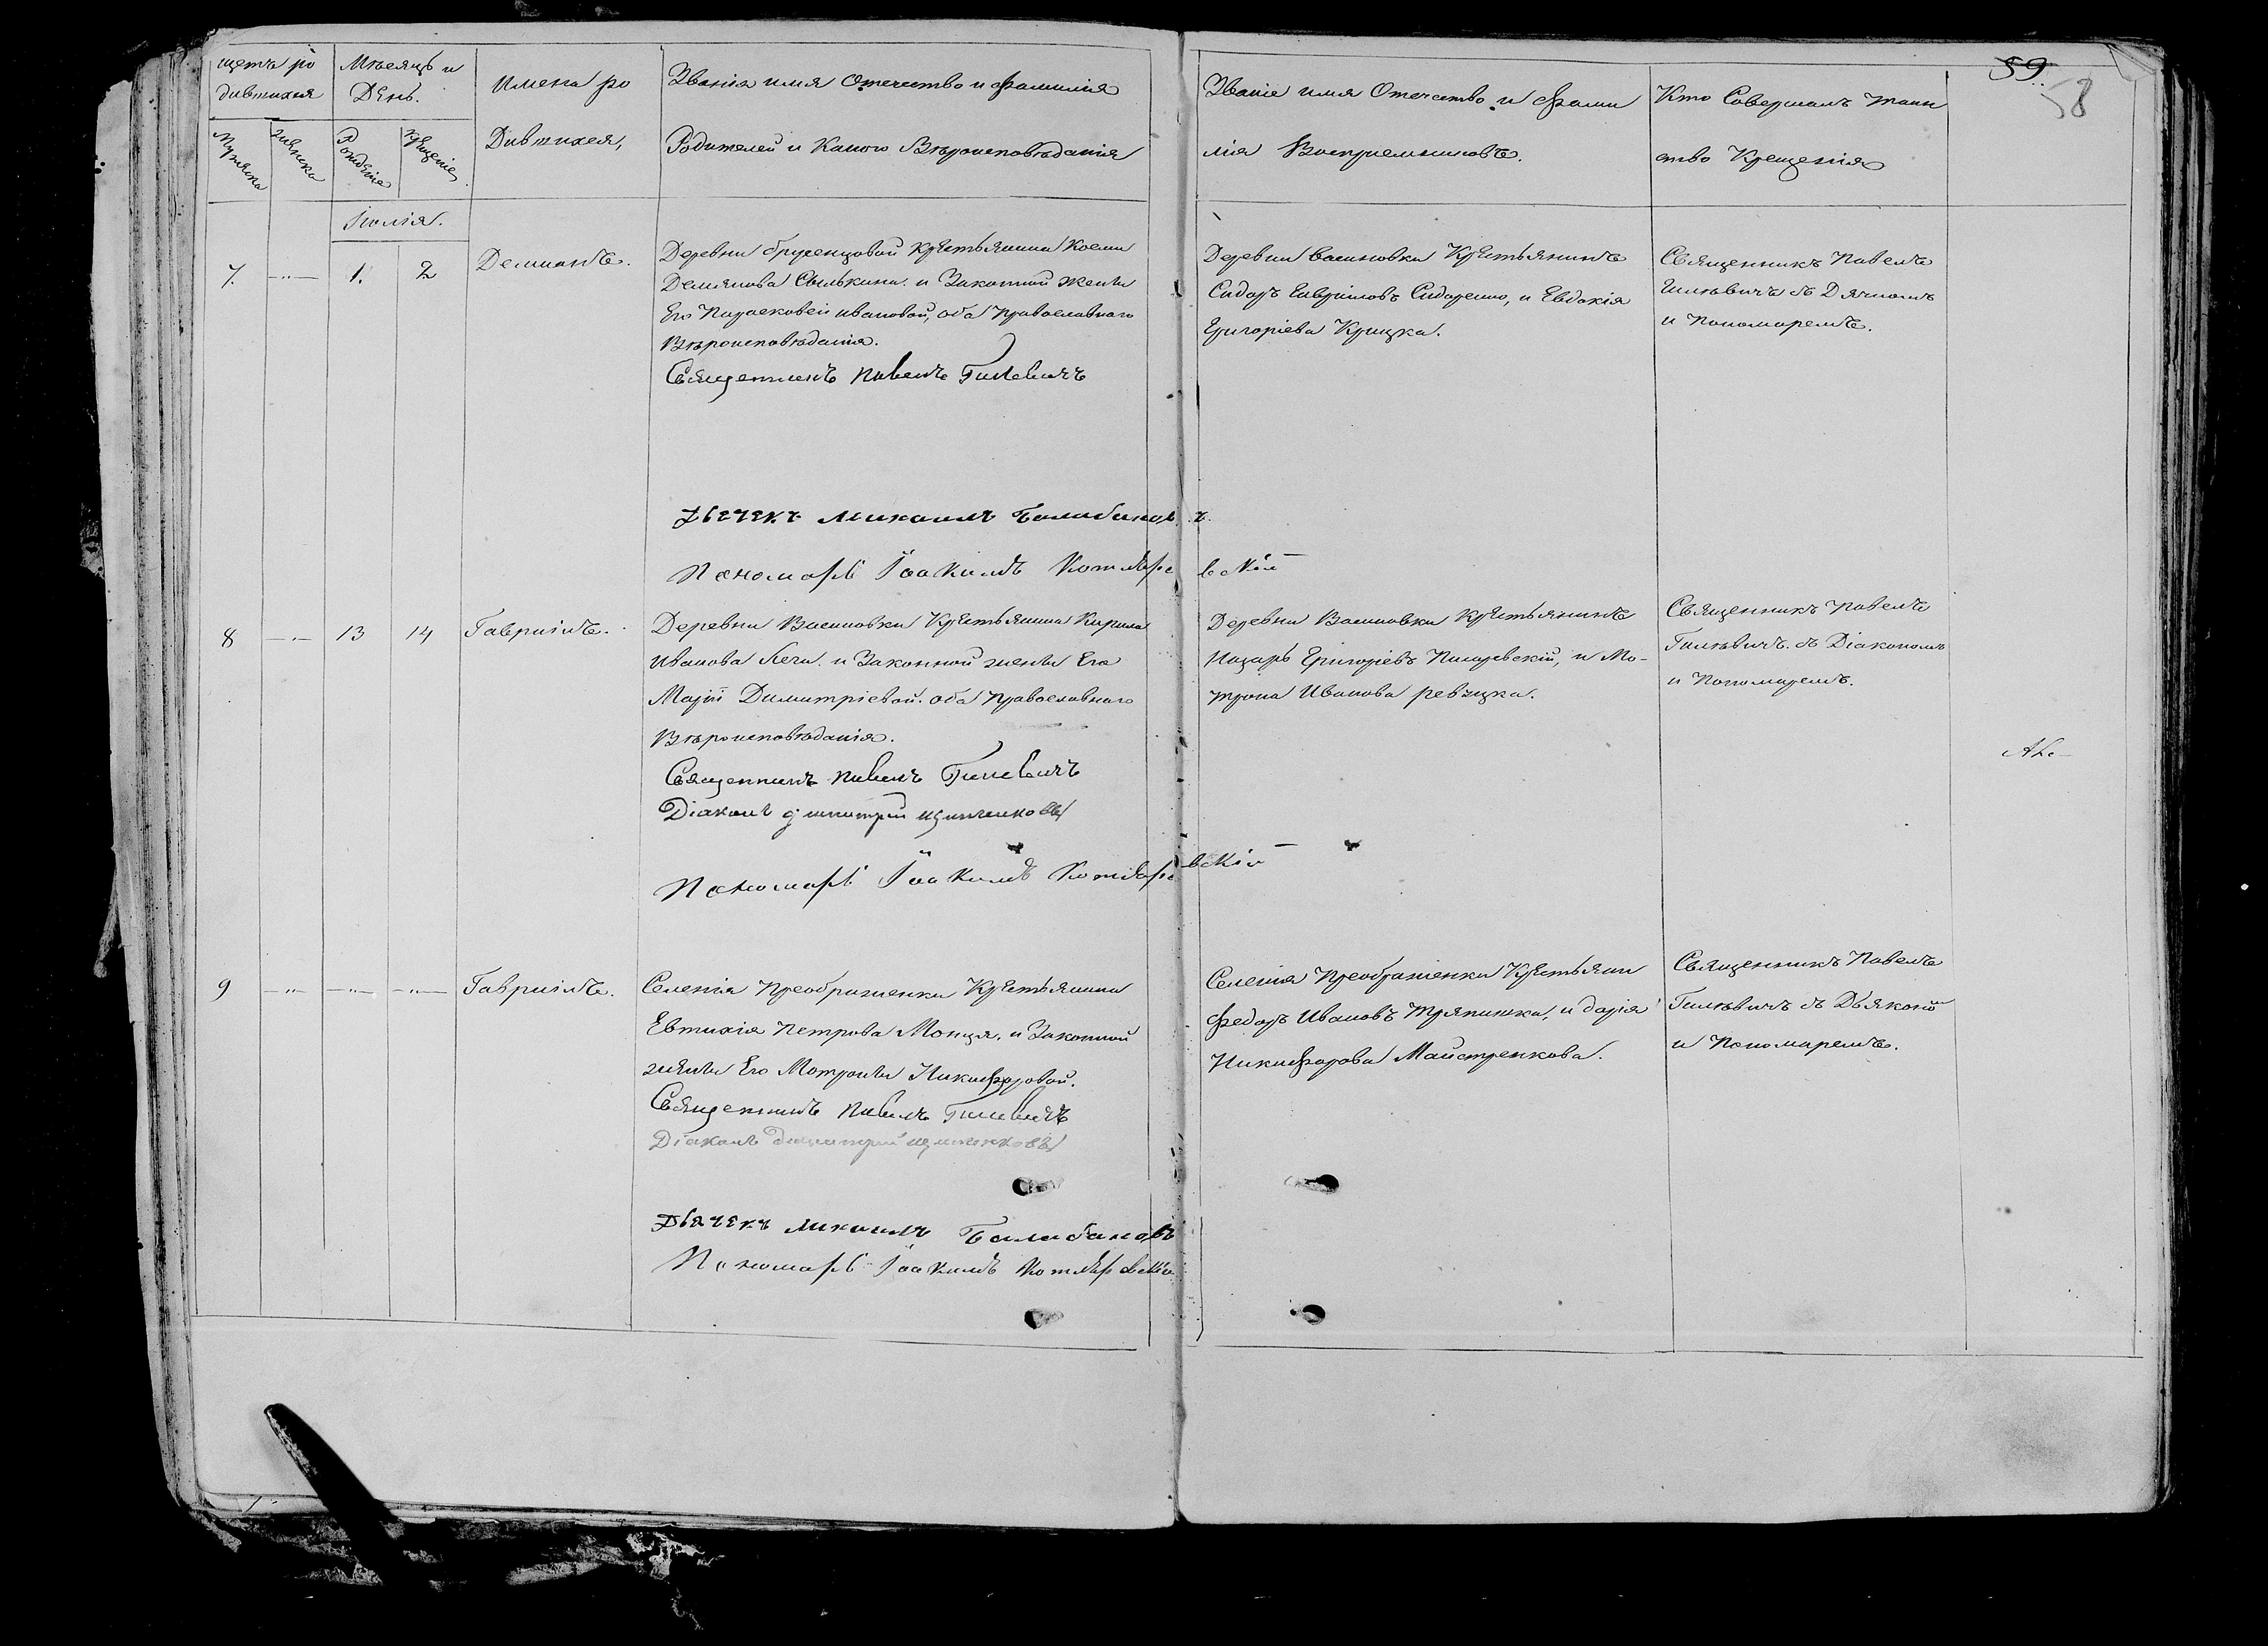 щетъ ро
дившихся
Мѣсяцъ и
День.
Имена ро
дившихся,
Званія имя Отечество и фамилія
Родителей и Какого Вѣроисповѣданія
Мужеска
женска
Рожденіе
Крещеніе
Званіе имя Отечество и фами
лія Воспріемниковъ.
Кто Совершалъ таин
ство Крещенія
59
58
Іюлія.
7. 1. 2
Деміанъ.
Деревни Крестьянина Косми
Демянова и Законной жены
Его Парасковеи Ивановой, оба Православнаго
Вѣроисповѣданія.
Священникъ Павелъ Гилевичъ
Дьячекъ Михаилъ Балабановъ.
Пономарь Іоакимъ Котляревскій
Деревни Васиновки Крестьянинъ
Сидоръ Гавріиловъ Сидоренко, и Евдокія
Григоріева Крицка.
Священникъ Павелъ
Гилѣвичъ съ Дячкомъ
и Пономаремъ.
8 13 14
Гавріилъ.
Деревни Васиновки Крестьянина Кирила
Иванова и Законной жены Его
Маріи Димитріевой. оба Православнаго
Вѣроисповѣданія.
Священникъ Павелъ Гилевичъ
Діаконъ Димитрій
Пономарь Іоакимъ Котляревскій
Деревни Васиновки Крестьянинъ
Назаръ Григоріевъ Писаревскій, и Мо-
трона Иванова ревуцка.
Священникъ Павелъ
Гилѣвичъ съ Діакономъ
и Пономаремъ.
9
Гавріилъ.
Селенія Преображенки Крестьянина
Евтихія Петрова и Законной
жены Его Мотроны Никифоровой.
Священникъ Павелъ Гилевичъ
Діаконъ Димитрій
Дьячекъ Михаилъ Балабановъ
Пономарь Іоакимъ Котляревскій
Селенія Преображенки Крестьянин
Федоръ Ивановъ Тряпишка, и дарія
Никифорова Майстренкова.
Священникъ Павелъ
Гилѣвичъ съ Дьякономъ
и Пономаремъ.